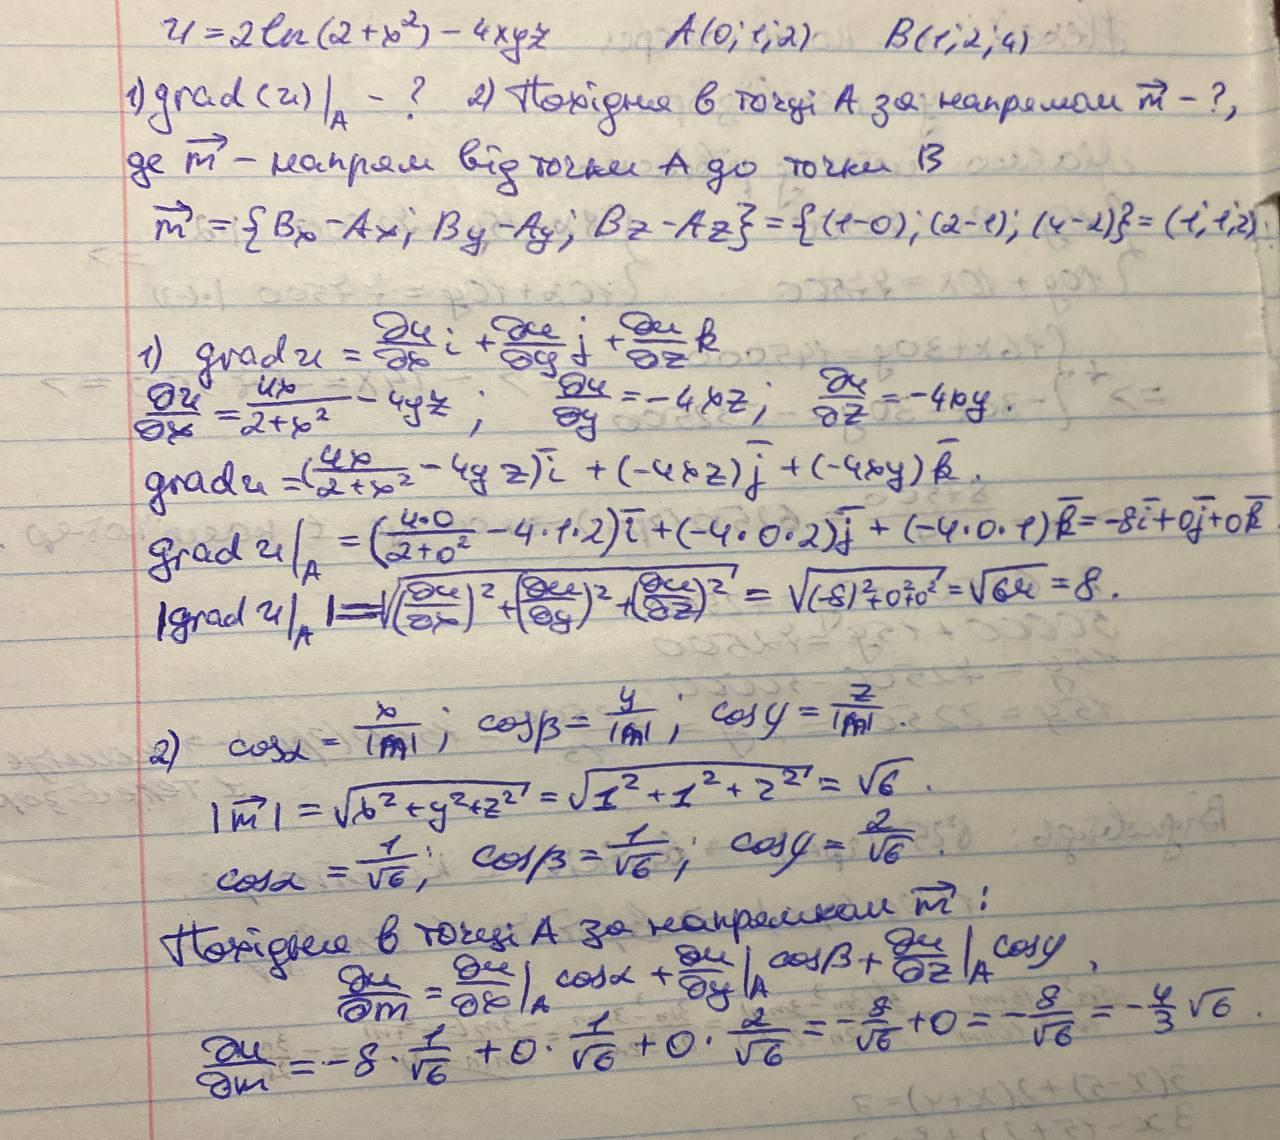 u = 2ln(2+x²) - 4xyz A(0;1;2) B(1;2;4)
1) grad(u)|_A - ? 2) Похідна в точці А за напрямом m⃗ - ?,
де m⃗ - напрям від точки А до точки В
m⃗ = {Bx - Ax; By - Ay; Bz - Az} = {(1-0); (2-1); (4-2)} = (1;1;2).
1) grad u = ∂u/∂x i + ∂u/∂y j + ∂u/∂z k
∂u/∂x = 4x/(2+x²) - 4yz; ∂u/∂y = -4xz; ∂u/∂z = -4xy.
grad u = (4x/(2+x²) - 4yz)i̅ + (-4xz)j̅ + (-4xy)k̅.
grad u|_A = (4·0/(2+0²) - 4·1·2)i̅ + (-4·0·2)j̅ + (-4·0·1)k̅ = -8i̅ + 0j̅ + 0k̅
|grad u|_A| = √((∂u/∂x)² + (∂u/∂y)² + (∂u/∂z)²) = √((-8)²+0²+0²) = √64 = 8.
2) cosα = x/|m|; cosβ = y/|m|; cosγ = z/|m|.
|m⃗| = √(x²+y²+z²) = √(1²+1²+2²) = √6.
cosα = 1/√6; cosβ = 1/√6; cosγ = 2/√6.
Похідна в точці А за напрямком m⃗:
∂u/∂m = ∂u/∂x|_A cosα + ∂u/∂y|_A cosβ + ∂u/∂z|_A cosγ,
∂u/∂m = -8 · 1/√6 + 0 · 1/√6 + 0 · 2/√6 = -8/√6 + 0 = -8/√6 = -4/3 √6.